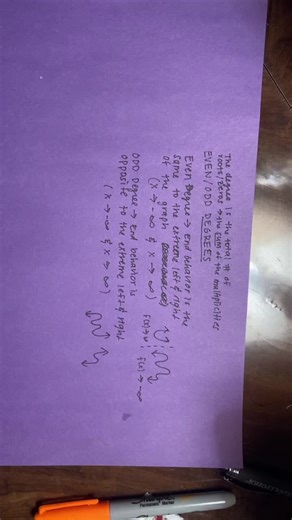 The degree is the total # of
roots/zeros → the sum of the multiplicities
EVEN/ODD DEGREES
Even Degree → End behavior is the
same to the extreme left & right
of the graph
(x → -∞ & x → ∞)
f(x) → -∞
ODD Degree → End behavior is
opposite to the extreme left & right
(x → -∞ & x → ∞)
Permanent Marker